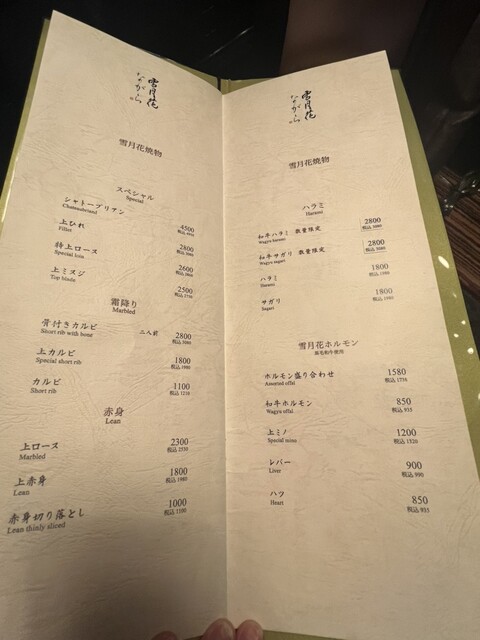 雪月花
ながらゝ
雪月花焼物
スペシャル
Special
シャトーブリアン
Chateaubriand
4500
税込 4950
上ひれ
Fillet
2800
税込 3080
特上ロース
Special loin
2600
税込 2860
上ミスジ
Top blade
2500
税込 2750
霜降り
Marbled
骨付きカルビ 二人前
Short rib with bone
2800
税込 3080
上カルビ
Special short rib
1800
税込 1980
カルビ
Short rib
1100
税込 1210
赤身
Lean
上ロース
Marbled
2300
税込 2530
上赤身
Lean
1800
税込 1980
赤身切り落とし
Lean thinly sliced
1000
税込 1100
雪月花
雪月花焼物
ハラミ
Harami
和牛ハラミ 数量限定
Wagyu harami
2800
税込 3080
和牛サガリ 数量限定
Wagyu sagari
2800
税込 3080
ハラミ
Harami
1800
税込 1980
サガリ
Sagari
1800
税込 1980
雪月花ホルモン
黒毛和牛使用
ホルモン盛り合わせ
Assorted offal
1580
税込 1738
和牛ホルモン
Wagyu offal
850
税込 935
上ミノ
Special mino
1200
税込 1320
レバー
Liver
900
税込 990
ハツ
Heart
850
税込 935